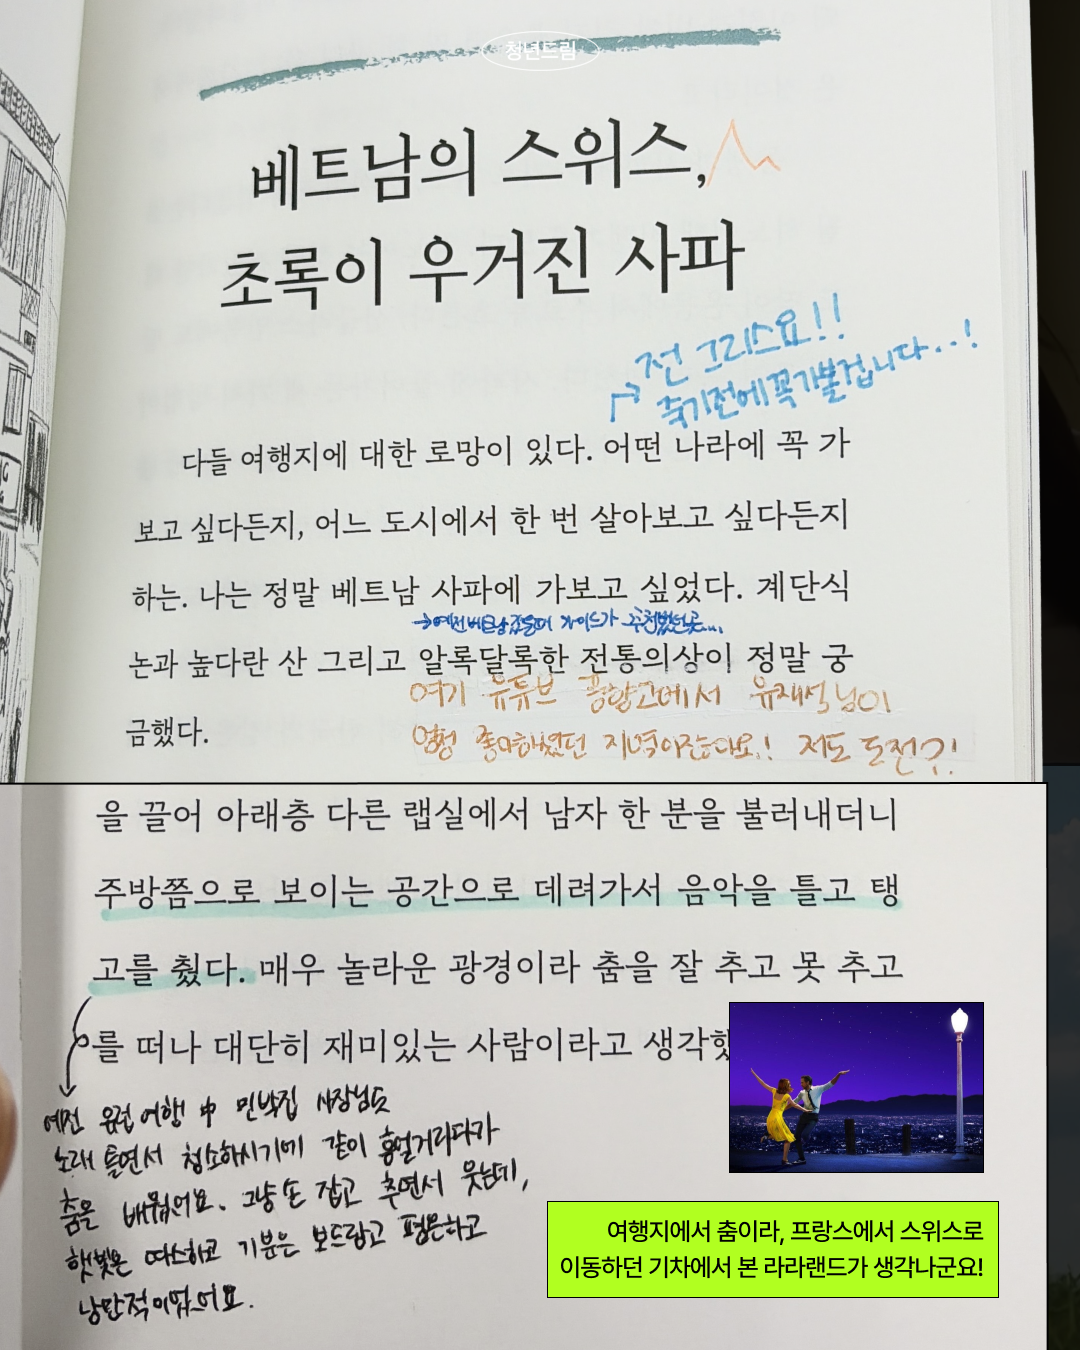 청년드림
베트남의 스위스,
초록이 우거진 사파
전 그리스요!!
죽기전에 꼭 가볼겁니다..!
다들 여행지에 대한 로망이 있다. 어떤 나라에 꼭 가
보고 싶다든지, 어느 도시에서 한 번 살아보고 싶다든지
하는. 나는 정말 베트남 사파에 가보고 싶었다. 계단식
→예전 베트남 갔을때 가이드가 추천했던곳...
논과 높다란 산 그리고 알록달록한 전통의상이 정말 궁
여기 유튜브 핑계고에서 유재석님이
엄청 좋아하셨던 지역이잖아요! 저도 도전?!
금했다.
을 끌어 아래층 다른 랩실에서 남자 한 분을 불러내더니
주방쯤으로 보이는 공간으로 데려가서 음악을 틀고 탱
고를 췄다. 매우 놀라운 광경이라 춤을 잘 추고 못 추고
를 떠나 대단히 재미있는 사람이라고 생각했
예전 유럽여행 中 민박집 사장님도
노래 틀면서 청소하시기에 같이 흥얼거리다가
춤을 배웠어요. 그냥 손 잡고 추면서 웃는데,
햇빛은 따스하고 기분은 보드랍고 평온하고
낭만적이었어요.
여행지에서 춤이라, 프랑스에서 스위스로
이동하던 기차에서 본 라라랜드가 생각나군요!